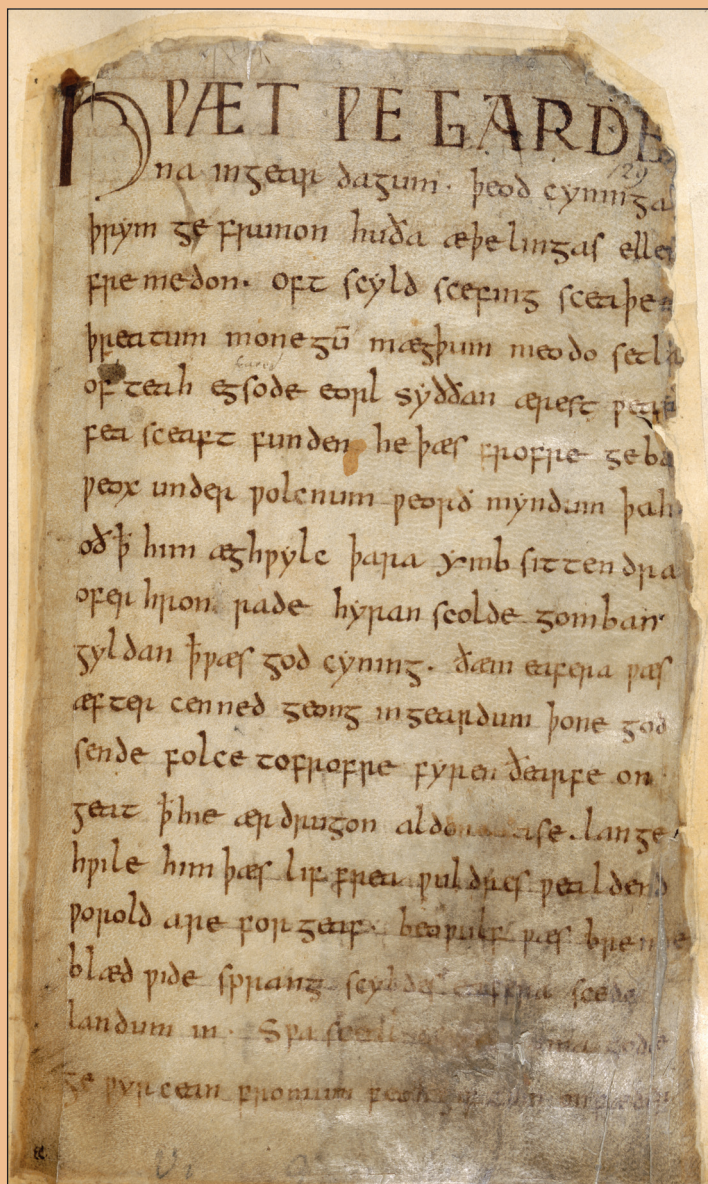 HǷÆT ǷE GARDE
129
na ingear dagum · þeod cyninga
þrym ge frunon huða æþelingas elle
fremedon. oft scyld scefing sceaþe
þreatum monegū mægþum meodo setla
of teah egsode eorl syððan ærest ƿear
fea sceaft funden he þæs frofre geba
ƿeox under ƿolcnum ƿeorð myndum þah
oð ꝥ him æghƿylc þara ymb sittendra
ofer hron rade hyran scolde gomban
gyldan ꝥ ƿæs god cyning · ðæm eafera ƿæs
æfter cenned geong ingeardum þone god
sende folce tofrofre fyren ðearfe on
geat ꝥ hie ær drugon aldor ase. lange
hƿile him þæs lif frea ƿuldres ƿealdend
ƿorold are for geaf. beoƿulf ƿæs breme
blæd ƿide sprang scyldes eafera scede
landum in. Sƿa
ge ƿyrcean fromum feoh giftum